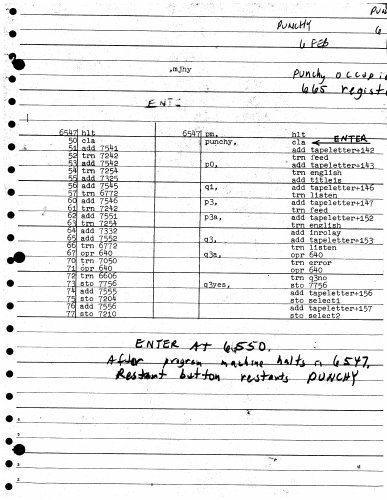 PUN
PUNCHY 6
6 FEB
.mjhy
Punchy occupie
665 regist
ENT
6547 hlt 6547 pm, hlt
50 cla punchy, cla ← ENTER
51 add 7541 add tapeletter+142
52 trn 7242 trn feed
53 add 7542 p0, add tapeletter+143
54 trn 7254 trn english
55 add 7325 add titleis
56 add 7545 q1, add tapeletter+146
57 trn 6772 trn listen
60 add 7546 p3, add tapeletter+147
61 trn 7242 trn feed
62 add 7551 p3a, add tapeletter+152
63 trn 7254 trn english
64 add 7332 add inrolay
65 add 7552 q3, add tapeletter+153
66 trn 6772 trn listen
67 opr 640 q3a, opr 640
70 trn 7050 trn error
71 opr 640 opr 640
72 trn 6606 trn q3no
73 sto 7756 q3yes, sto 7756
74 add 7555 add tapeletter+156
75 sto 7204 sto select1
76 add 7556 add tapeletter+157
77 sto 7210 sto select2
ENTER AT 6550.
After program machine halts @ 6547.
Restart button restarts PUNCHY